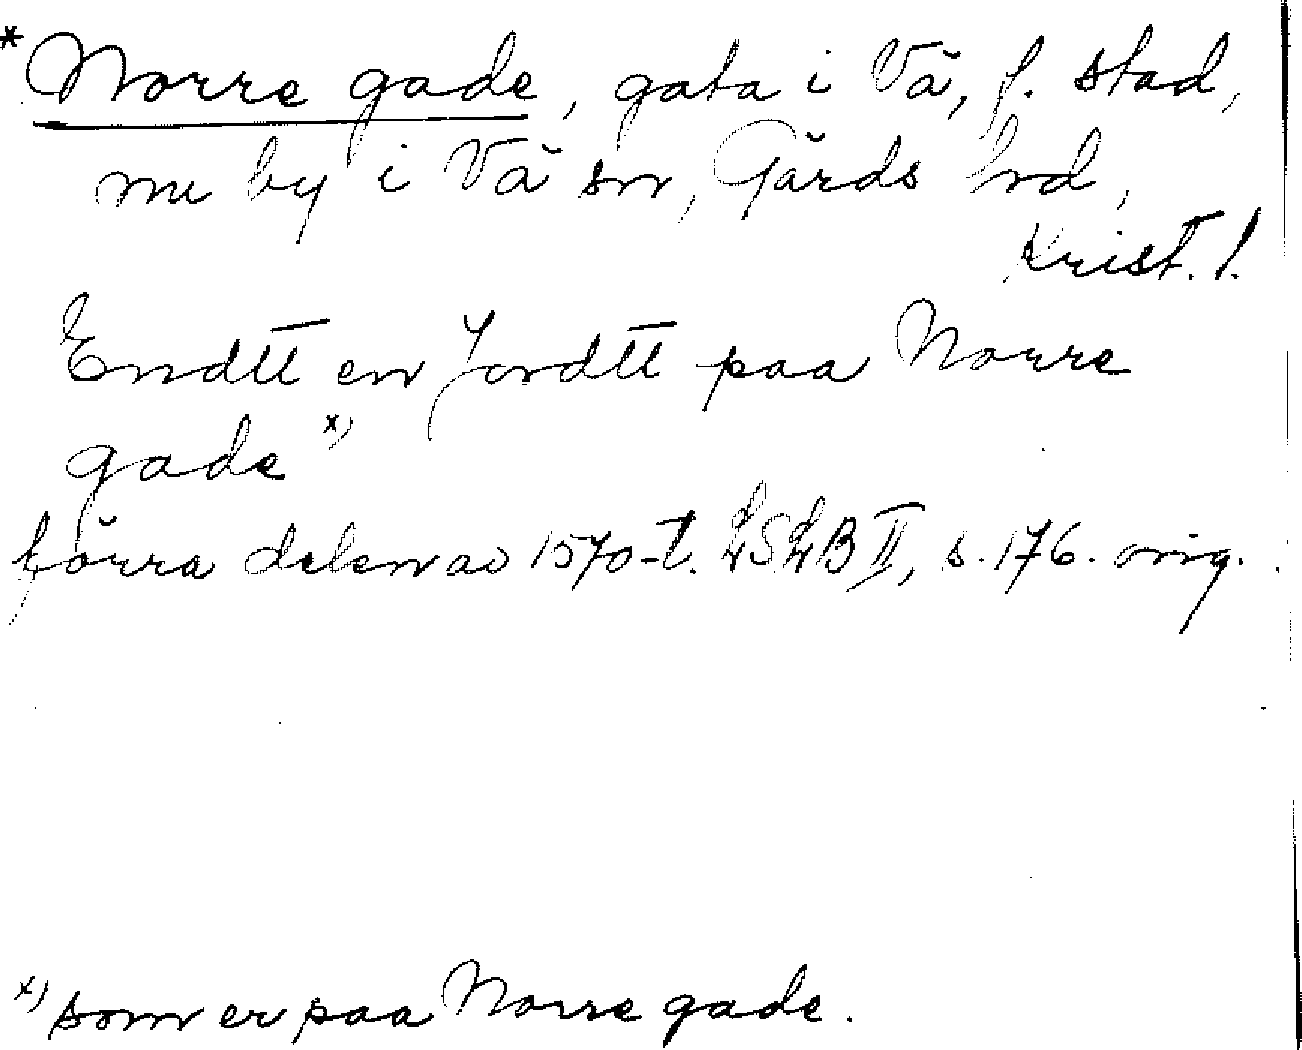 *Norre gade, gata i Vä, f. stad,
nu by i Vä sn, Gärds hrd,
Krist. l.
Endtt en Jordtt paa Norre
gade x)
förra delen av 1570-t. LSLB II, s. 176. orig.
x) som er paa Norre gade.